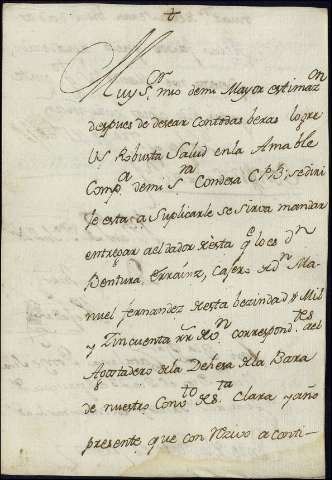 +
Muy S.r mio de mi Mayor estimaz.on
despues de desear con todas beras logre
VS Robusta Salud en la Amable
Comp.a de mi S.ra Condesa C.P.B; se diri
je esta, a Suplicarle se sirva mandar
entregar al dador de esta q.e lo es d.n
Bentura, Errainz, Cajero de d.n Ma-
nuel fernandez de esta bezindad Mil
y Zincuenta rr.s de v.n correspond.tes al
Agostadero de la Dehesa de la Bara
de nuestro Conv.to de S.ta Clara y año
presente, que con Rezivo a conti-